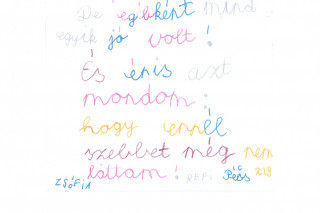 De egibként mind
egyik jó volt!
És énis azt
mondom:
hogy ennél
szebbet még nem
láttam!
ZSÓFIA